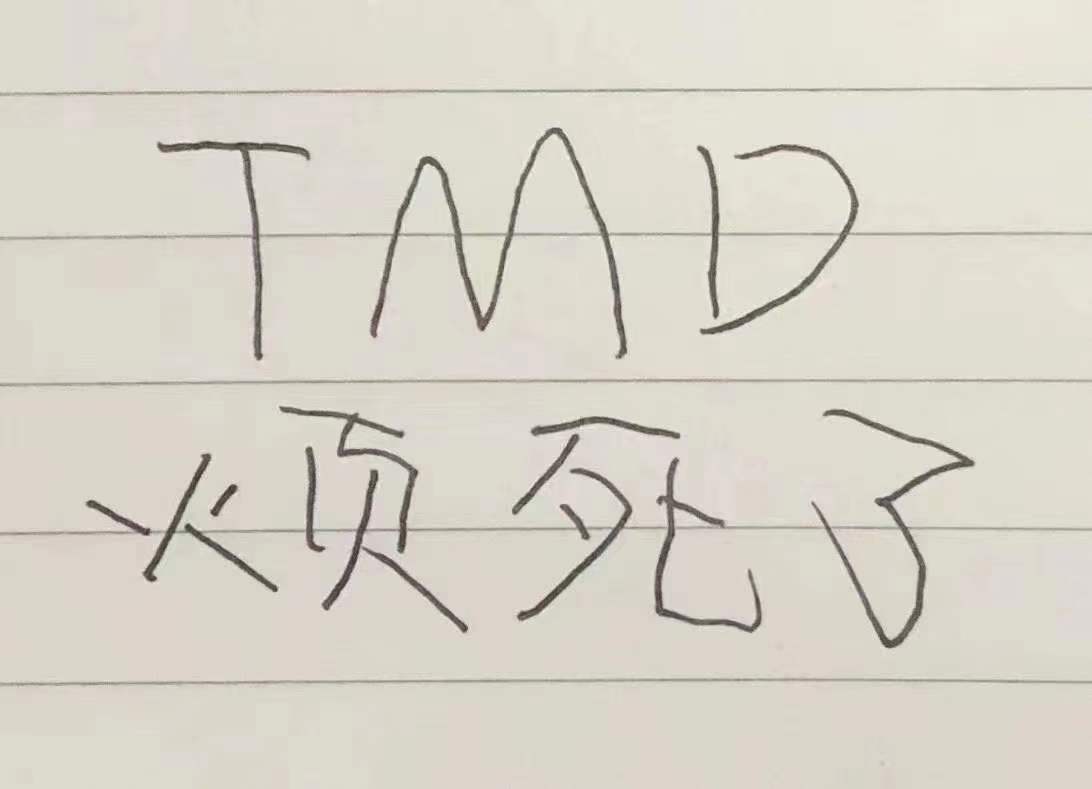 TMD
烦死了